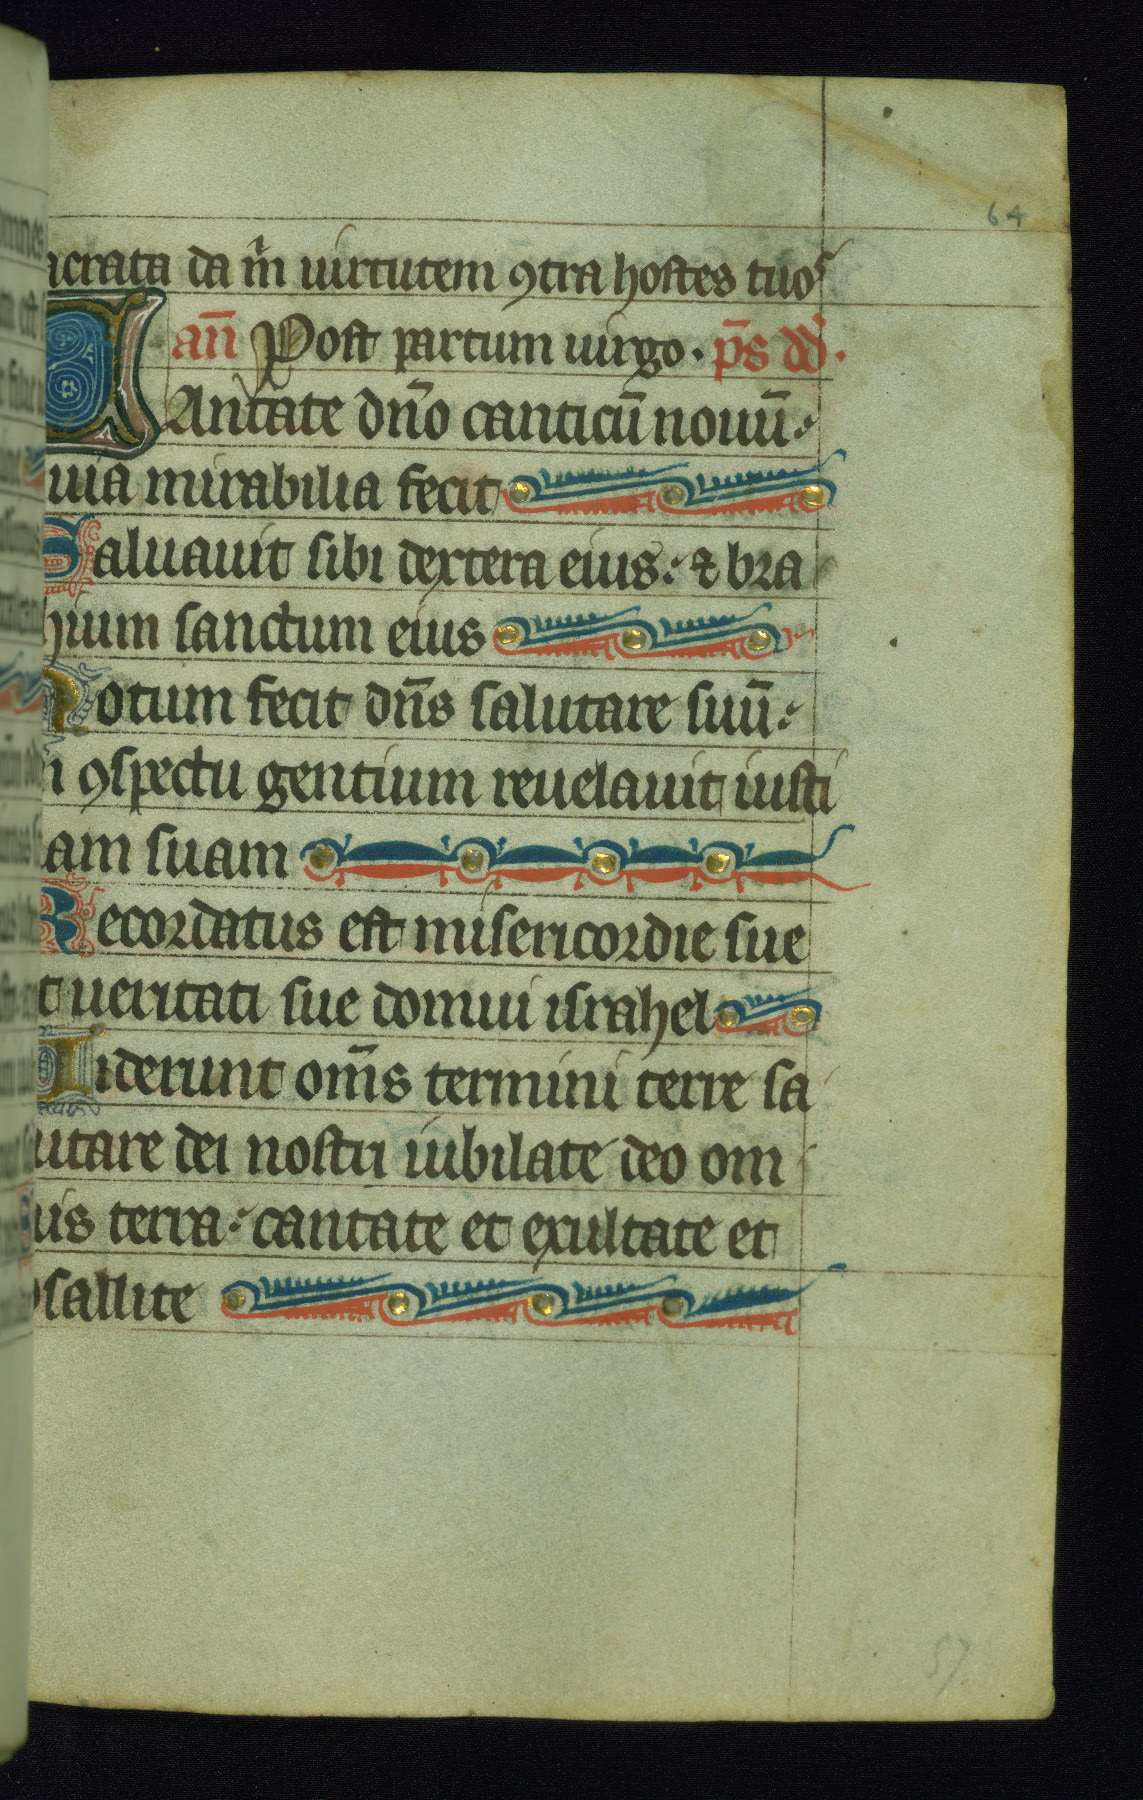 64
acrata da m̄ uirtutem ꝯtra hostes tuos
an̄ Post partum uirgo. p̄s dd̄.
Antate dn̄o canticū nouū:
uia mirabilia fecit
Saluauit sibi dextera eius: ⁊ bra
hium sanctum eius
Notum fecit dn̄s salutare suū:
in ꝯspectu gentium reuelauit iusti
am suam
Recordatus est misericordie sue
t ueritati sue domui israhel
Uiderunt om̄s termini terre sa
utare dei nostri iubilate deo om
nis terra: cantate et exultate et
psallite
57